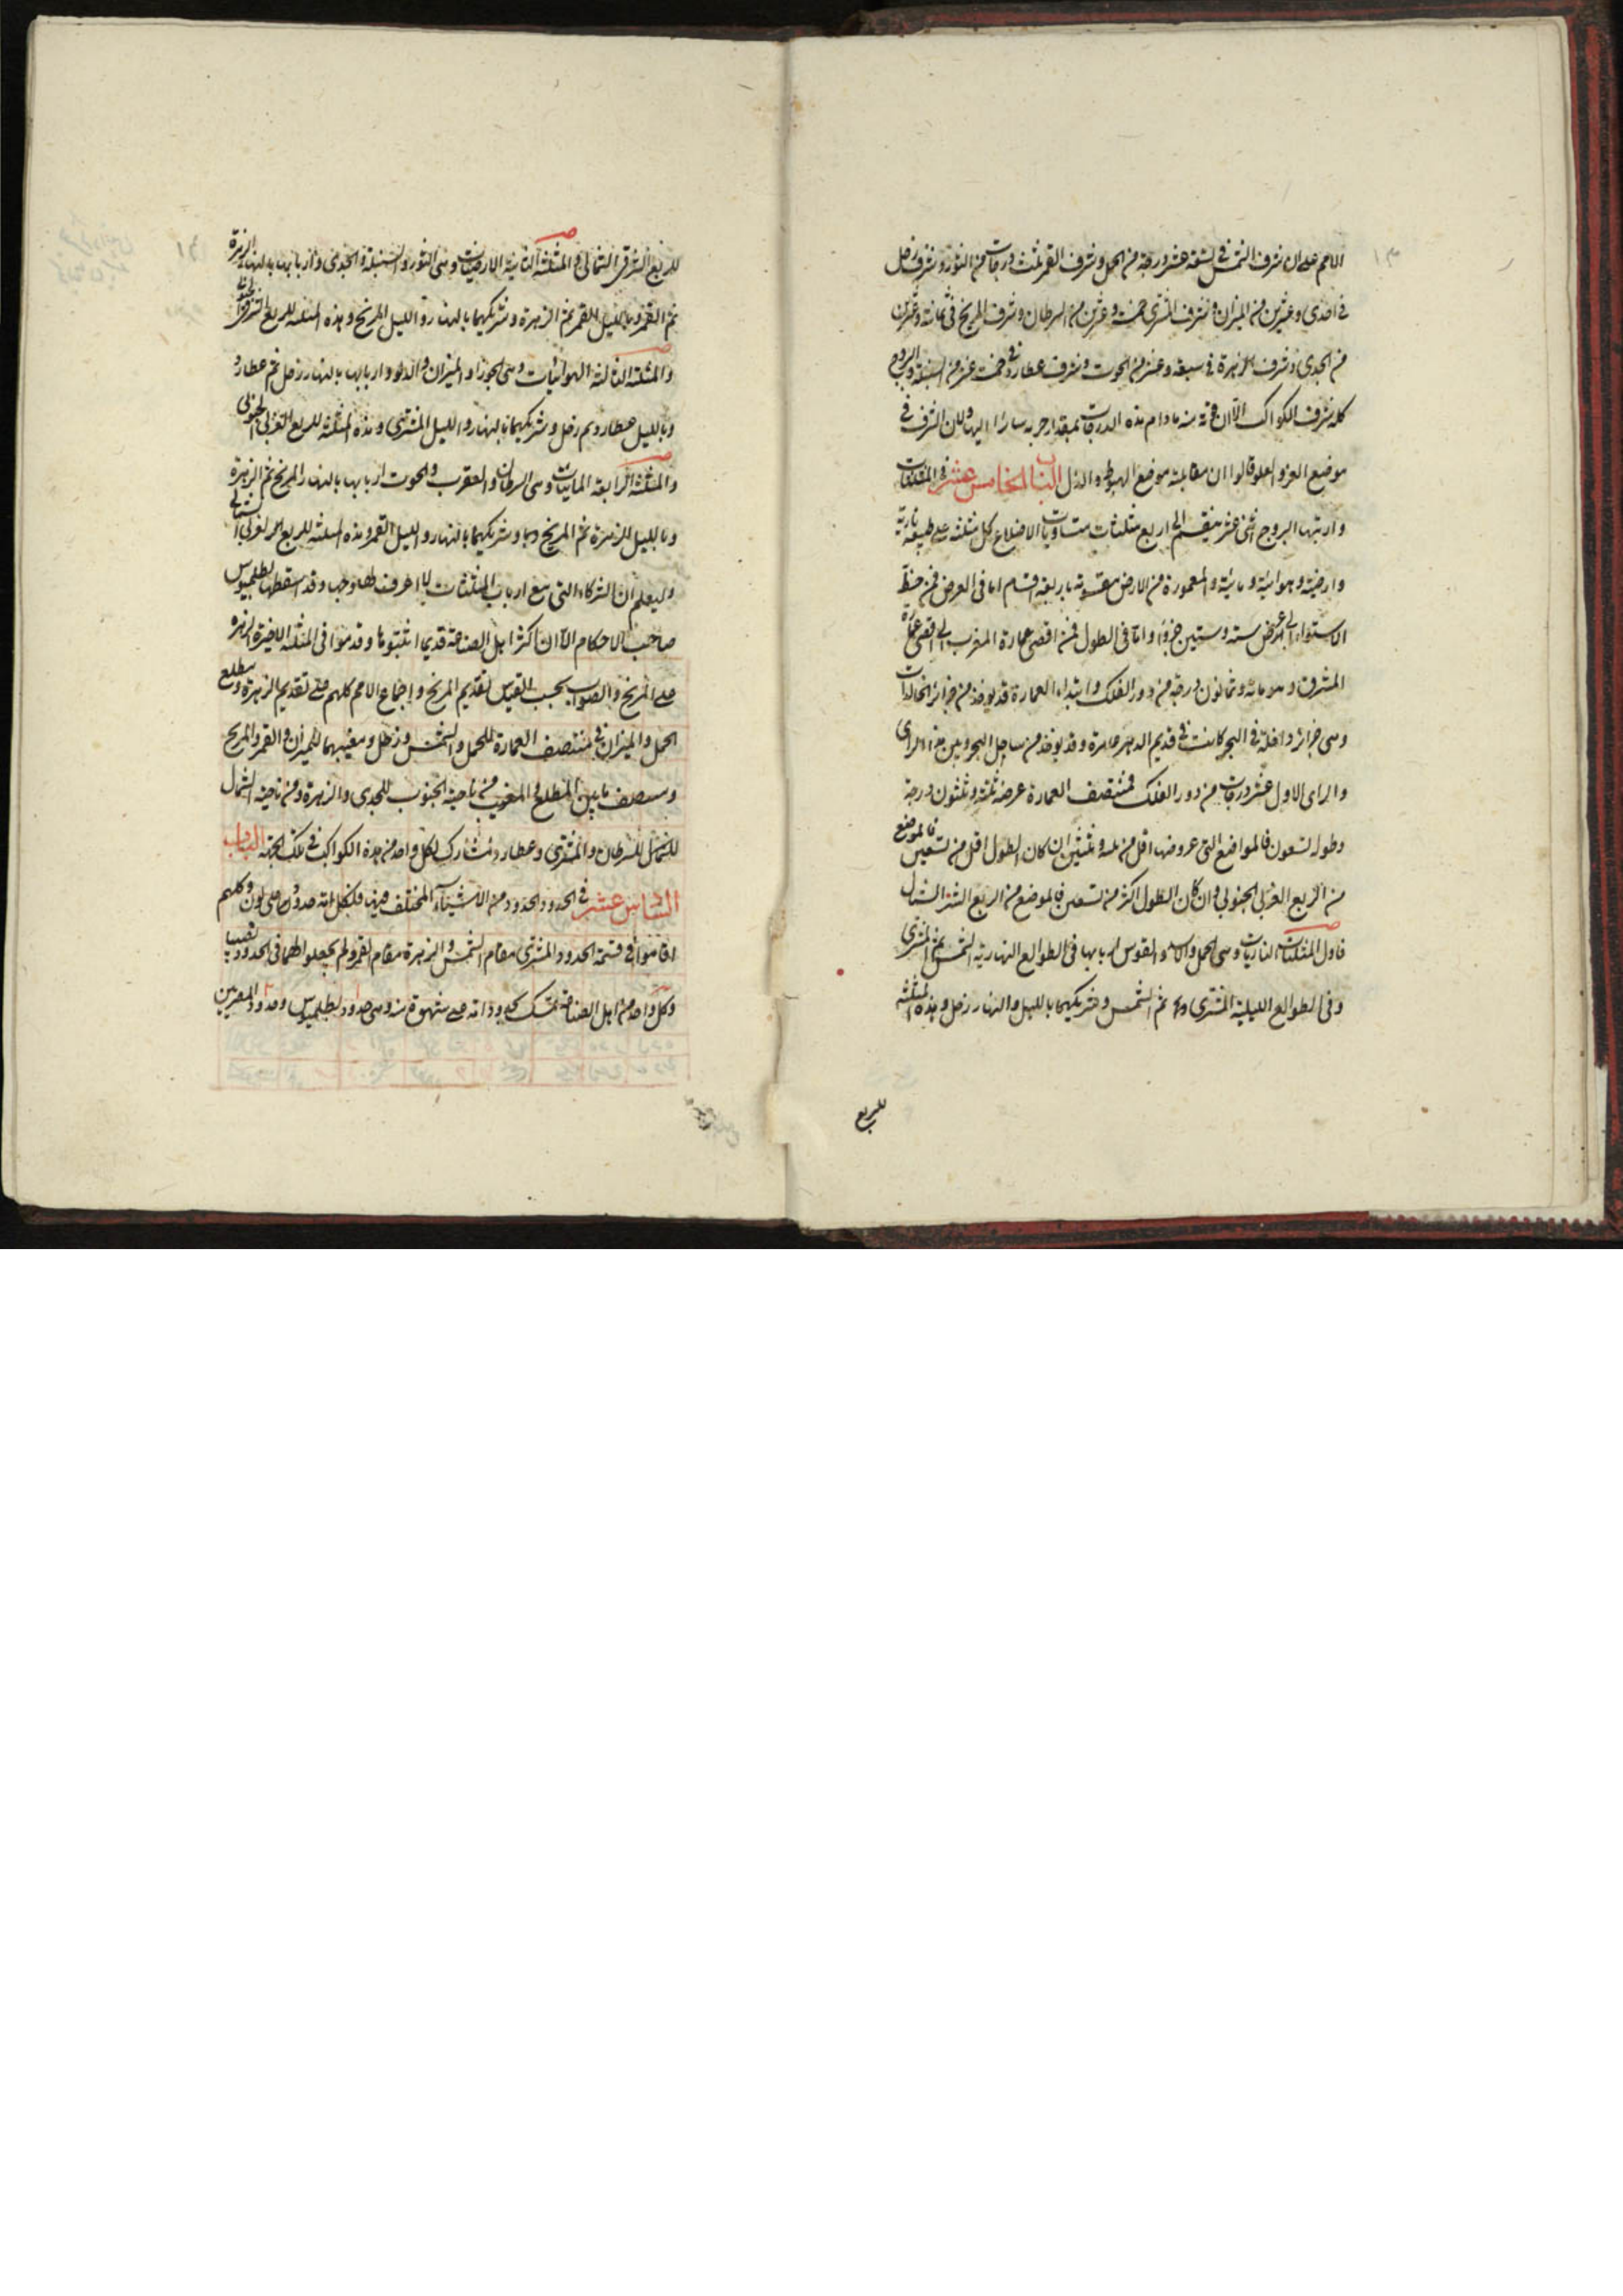 ١٣
الامم على ان شرف الشمس فى تسعة عشر درجة من الحمل وشرف القمر ثلث درجات من الثور وشرف زحل
فى احدى وعشرين من الميزان وشرف المشترى خمسة وعشرين من السرطان وشرف المريخ فى ثمانية وعشرين
من الجدى وشرف الزهرة فى سبعة وعشرين الحوت وشرف عطارد فى خمسة عشر من السنبلة والبروج
كله شرف الكواكب الا ان منه ما دام هذه الدرجات بمقدار جرمه سائرا اليها ولان الشرف فى
موضع العز والعلو قالوا ان مقابلته موضع الهبوط والذل الباب الخامس عشر فى المثلثات
واربابها البروج اثنى عشر ينقسم الى اربع مثلثات متساويات الاضلاع كل مثلثة على طبيعة نارية
وارضية وهوائية ومائية والمعمورة من الارض مقسومة باربعة اقسام اما فى العرض فمن خط
الاستواء الى عرض ستة وستين جزؤا واما فى الطول فمن اقصى عمارة المغرب الى اقصى عمارة
المشرق وهو مائة وثمانون درجة من دور الفلك وابتداء العمارة قد يؤخذ من جزائر الخالدات
وهى جزائر داخلة فى البحر كانت فى قديم الدهر عامرة وقد يؤخذ من ساحل البحر وبين هذا الراى
والراى الاول عشر درجات من دور الفلك فمنتصف العمارة عرضه ثلثة وثلثون درجة
وطوله تسعون فالمواضع التى عروضها اقل من ثلثة وثلثين ان كان الطول اقل من تسعين فالموضع
من الربع الغربى الجنوبى وان كان الطول اكثر من تسعين فالموضع من الربع الشرقى
فاول المثلثات الناريات وهى الحمل والاسد والقوس اربابها فى الطوالع النهارية الشمس ثم المشترى
وفى الطوالع الليلية المشترى ثم الشمس وشريكهما بالليل والنهار زحل وهذه المثلثة
للربع
١٤
للربع الشرقى الشمالى والمثلثة الثانية الارضيات وهى الثور والسنبلة والجدى واربابها بالنهار الزهرة
ثم القمر وبالليل القمر ثم الزهرة وشريكهما بالنهار والليل المريخ وهذه المثلثة للربع الشرقى الجنوبى
والمثلثة الثالثة الهوائيات وهى الجوزا والميزان والدلو واربابها بالنهار زحل ثم عطارد
وبالليل عطارد ثم زحل وشريكهما بالنهار والليل المشترى وهذه المثلثة للربع الغربى الجنوبى
والمثلثة الرابعة المائيات وهى السرطان والعقرب والحوت اربابها بالنهار المريخ ثم الزهرة
وبالليل الزهرة ثم المريخ وشريكهما بالنهار والليل القمر وهذه المثلثة للربع الغربى الشمالى
وليعلم ان الشركاء التى مع ارباب المثلثات لا اعرف لها وجها وقد اسقطها بطلميوس
صاحب الاحكام الا ان اكثر اهل الصناعة قديما اثبتوها وقدموا فى المثلثة الاخيرة الزهرة
على المريخ والصواب بحسب القياس تقديم المريخ واجماع الامم كلهم على تقديم الزهرة ومطلع
الحمل والميزان فى منتصف العمارة للحمل والشمس وزحل ومغيبهما للميزان والقمر والمريخ
ومنتصف ما بين المطلع والمغيب من ناحية الجنوب للجدى والزهرة ومن ناحية الشمال
للسرطان والمشترى وعطارد تشارك لكل واحد من هذه الكواكب فى تلك الجهة الباب
السادس عشر فى الحدود الحدود من الاشياء المختلف فيها فلكل امة حدود على لون وكلهم
اقاموا فى قسمة الحدود المشترى مقام الشمس والزهرة مقام القمر ولم يجعلوا لهما فى الحدود نصيبا
وكل واحد من اهل الصناعة تمسك وهى حدود بطلميوس وحدود المصريين